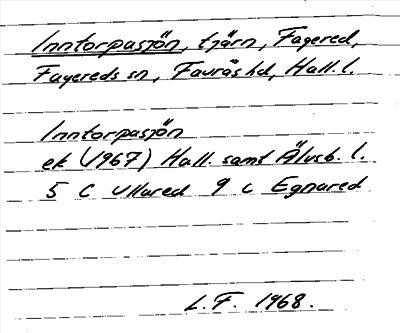 Inntorpasjön, tjärn, Fagered,
Fagereds sn, Faurås hd, Hall. l.
Inntorpasjön
ek (1967) Hall. samt Älvsb. l.
5 C Ullared 9 c Egnared
L.F. 1968.